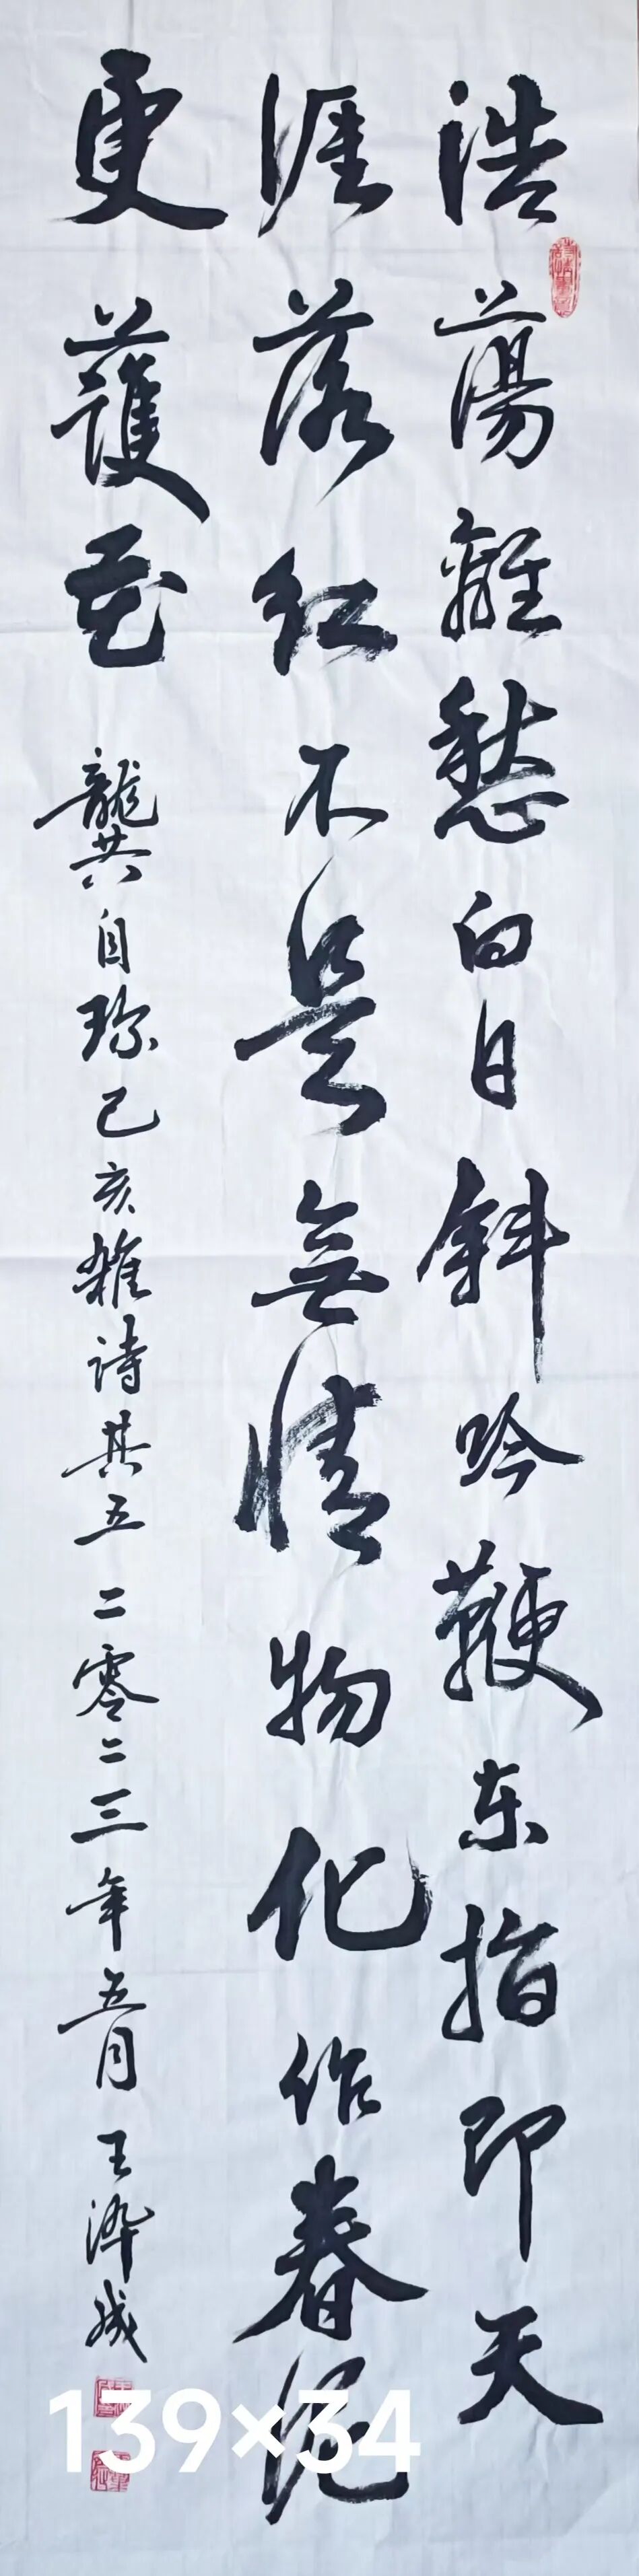 浩蕩離愁白日斜吟鞭东指即天
涯落红不是無情物化作春泥
更護花 龔自珍己亥雜詩其五 二零二三年五月 王
139×34